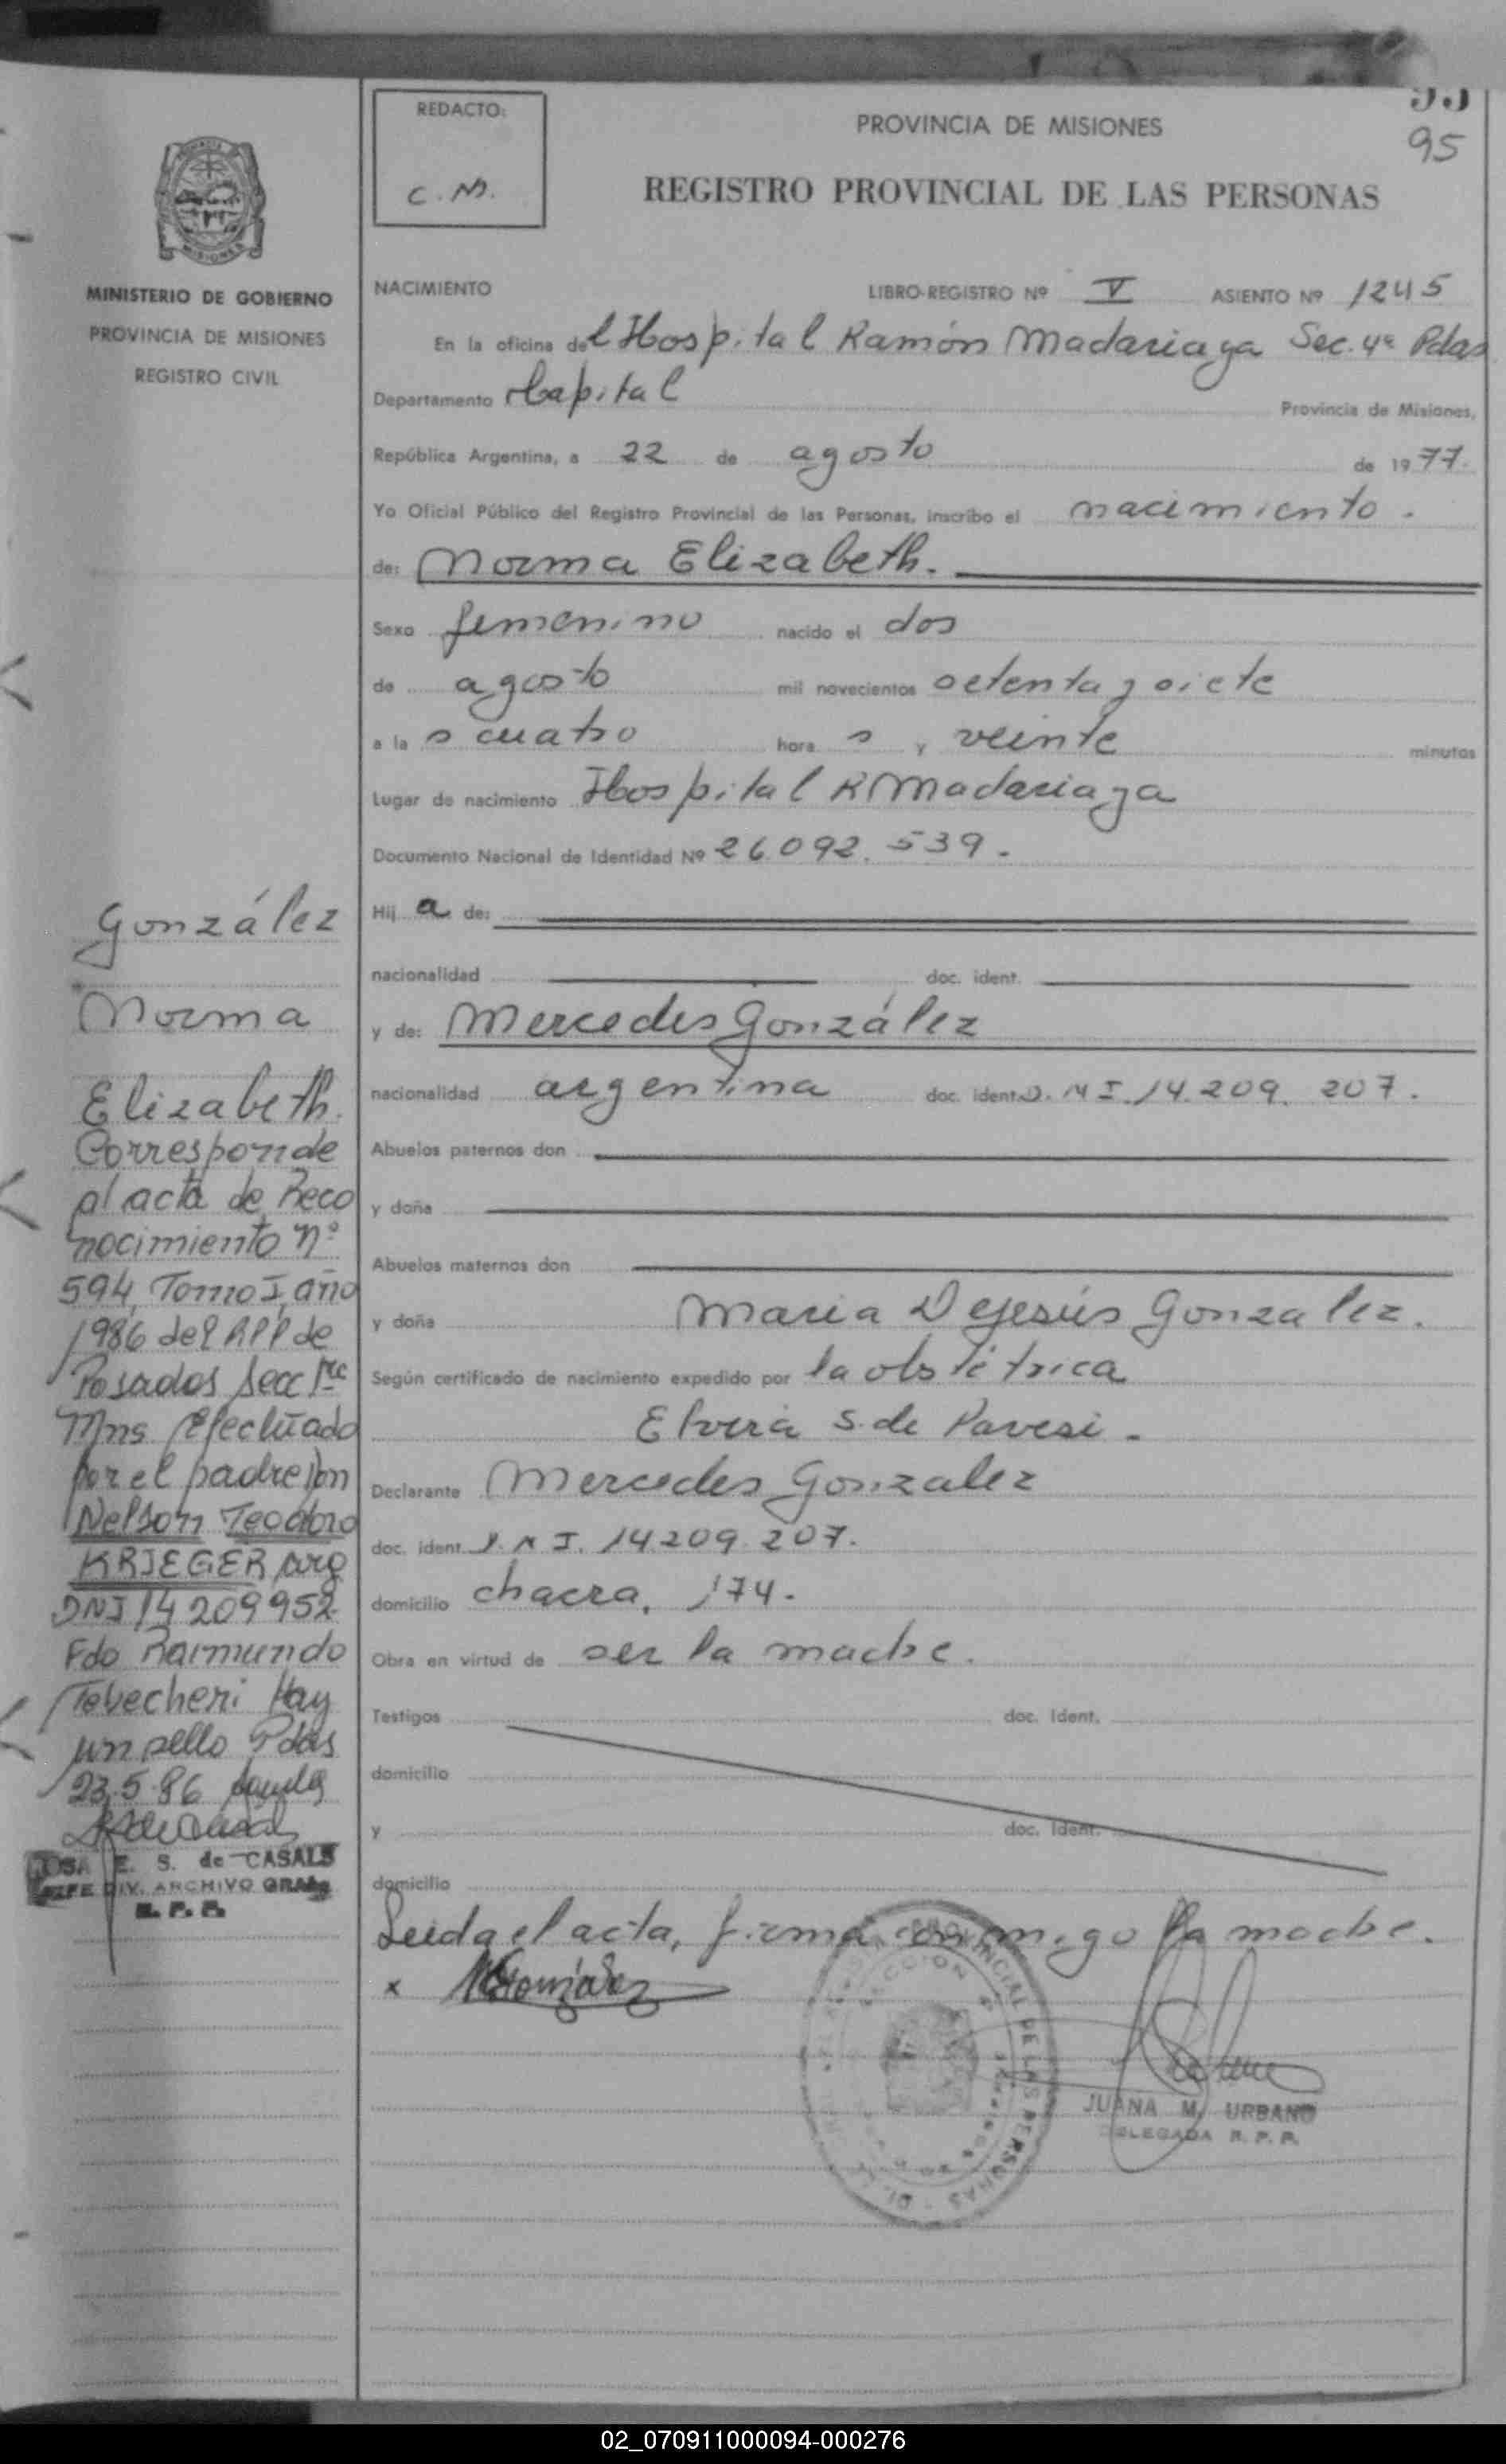 REDACTO:
C. M.
95
PROVINCIA DE MISIONES
95
REGISTRO PROVINCIAL DE LAS PERSONAS
MISIONES
MINISTERIO DE GOBIERNO
PROVINCIA DE MISIONES
REGISTRO CIVIL
NACIMIENTO LIBRO-REGISTRO Nº V ASIENTO Nº 1245
En la oficina del Hospital Ramón Madariaga Sec. 4ª Pdas
Departamento Capital Provincia de Misiones,
República Argentina, a 22 de agosto de 1977.
Yo Oficial Público del Registro Provincial de las Personas, inscribo el nacimiento.
de: Norma Elizabeth.
Sexo femenino nacido el dos
de agosto mil novecientos setenta y siete
a las cuatro horas y veinte minutos
Lugar de nacimiento Hospital R Madariaga
Documento Nacional de Identidad Nº 26.092.539.
Hija de:
nacionalidad doc. ident.
y de: Mercedes González
nacionalidad argentina doc. ident. D.N.I. 14.209.207.
Abuelos paternos don
y doña
Abuelos maternos don
y doña Maria Dejesús Gonzalez.
Según certificado de nacimiento expedido por la obstétrica
Elvira S. de Pavesi.
Declarante Mercedes Gonzalez
doc. ident. D.N.I. 14.209.207.
domicilio chacra, 174.
Obra en virtud de ser la madre.
Testigos doc. Ident.
domicilio
y doc. Ident.
domicilio
Leida el acta, firma conmigo la madre.
x MGonzalez
JUANA M. URBANO
DELEGADA R. P. P.
González
Norma
Elizabeth.
Corresponde
al acta de Reco
nocimiento nº
594, Tomo I, año
1986 del RPP de
Posadas Secc 1ra
Mns. Efectuado
por el padre Don
Nelson Teodoro
KRIEGER arg
DNI 14209952
Fdo Raimundo
Tebecheri Hay
un sello Pdas
23.5.86
E. S. de CASALS
JEFE DIV. ARCHIVO GRAL.
R. P. P.
02_070911000094-000276